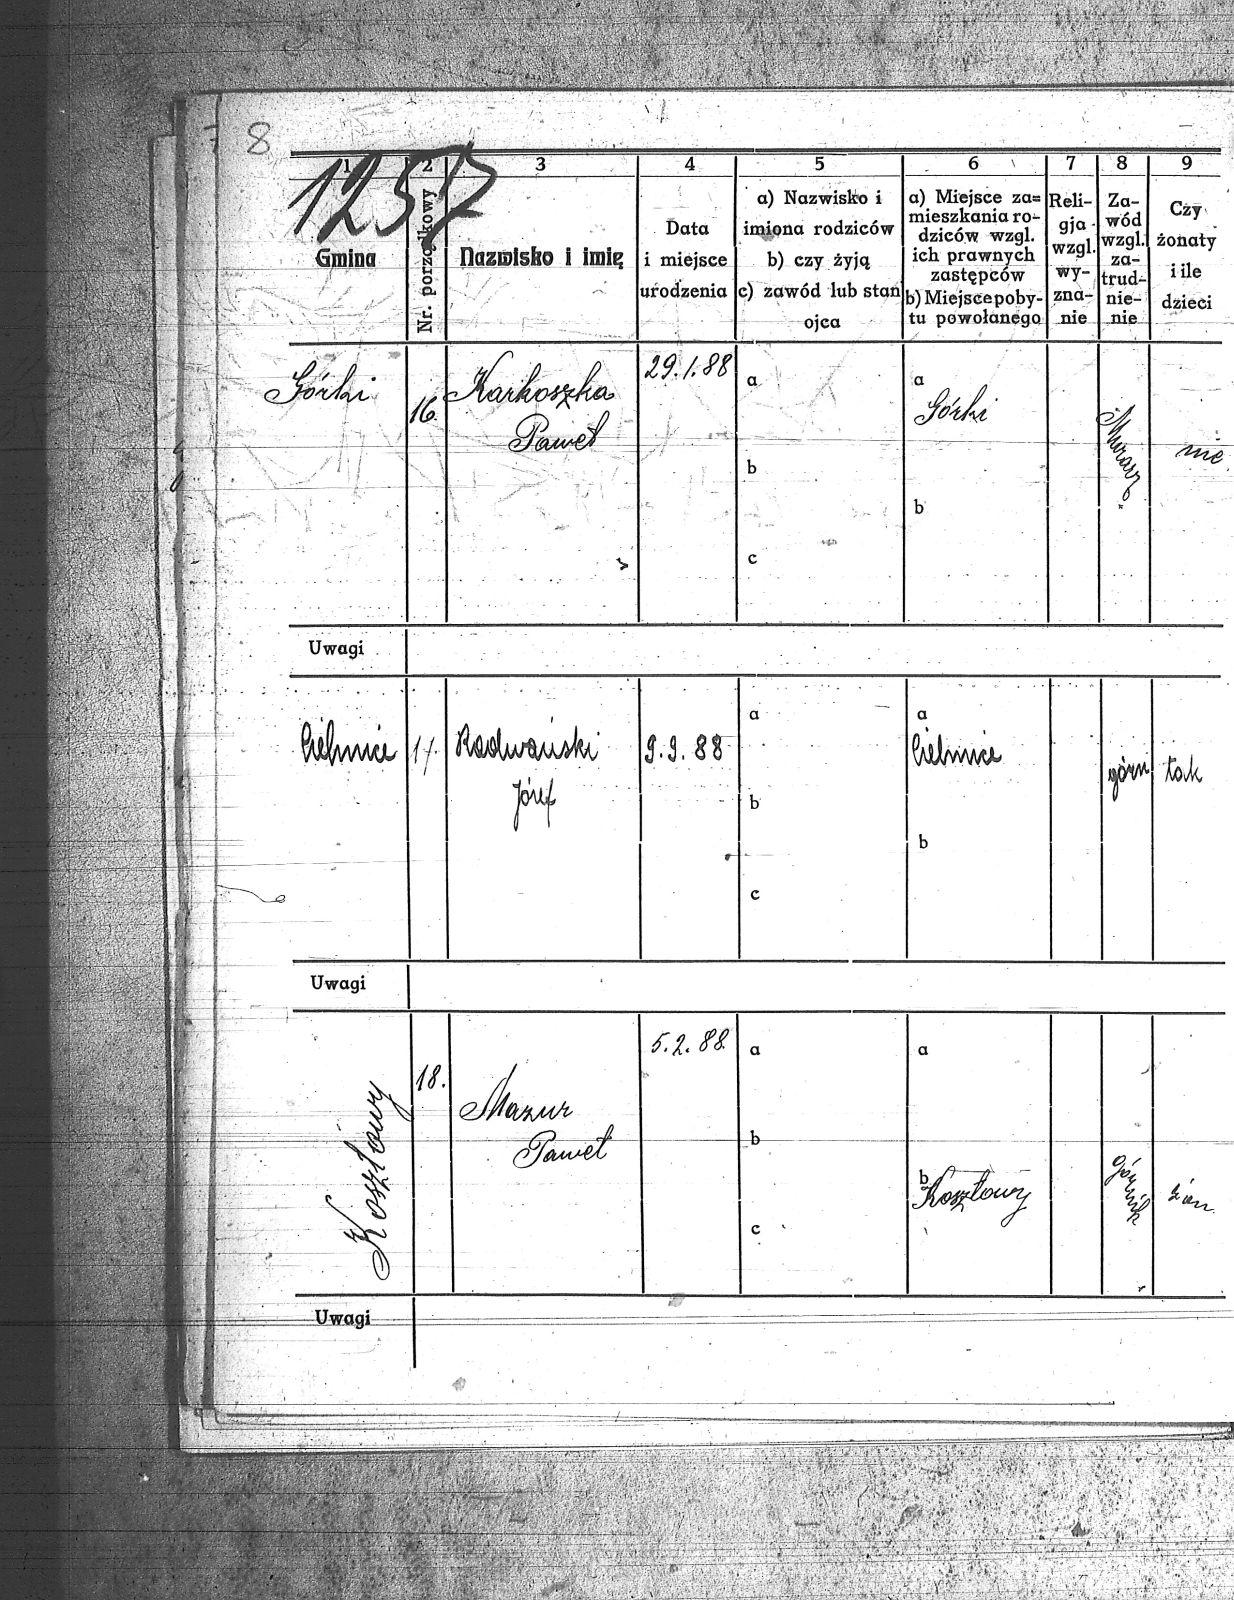 8
1257
1 2 3 4 5 6 7 8 9
Gmina
Nr. porządkowy
Nazwisko i imię
Data
i miejsce
urodzenia
a) Nazwisko i
imiona rodziców
b) czy żyją
c) zawód lub stan
ojca
a) Miejsce za=
mieszkania ro-
dziców wzgl.
ich prawnych
zastępców
b) Miejsce poby-
tu powołanego
Reli-
gja
wzgl.
wy-
zna-
nie
Za-
wód
wzgl.
za-
trud-
nie-
nie
Czy
żonaty
i ile
dzieci
Górki
16.
Karkoszka
Paweł
29.1.88
a
b
c
a
Górki
b
Murarz
nie
Uwagi
Cielmice
17.
Radwański
Józef
9.9.88
a
b
c
a
Cielmice
b
górn
tak
Uwagi
Kosztowy
18.
Mazur
Paweł
5.2.88.
a
b
c
a
b
Kosztowy
górnik
Uwagi